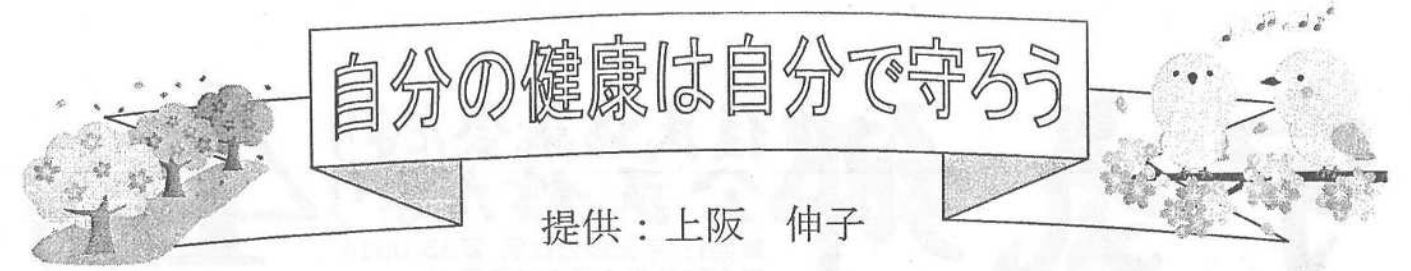 自分の健康は自分で守ろう
提供：上阪　伸子